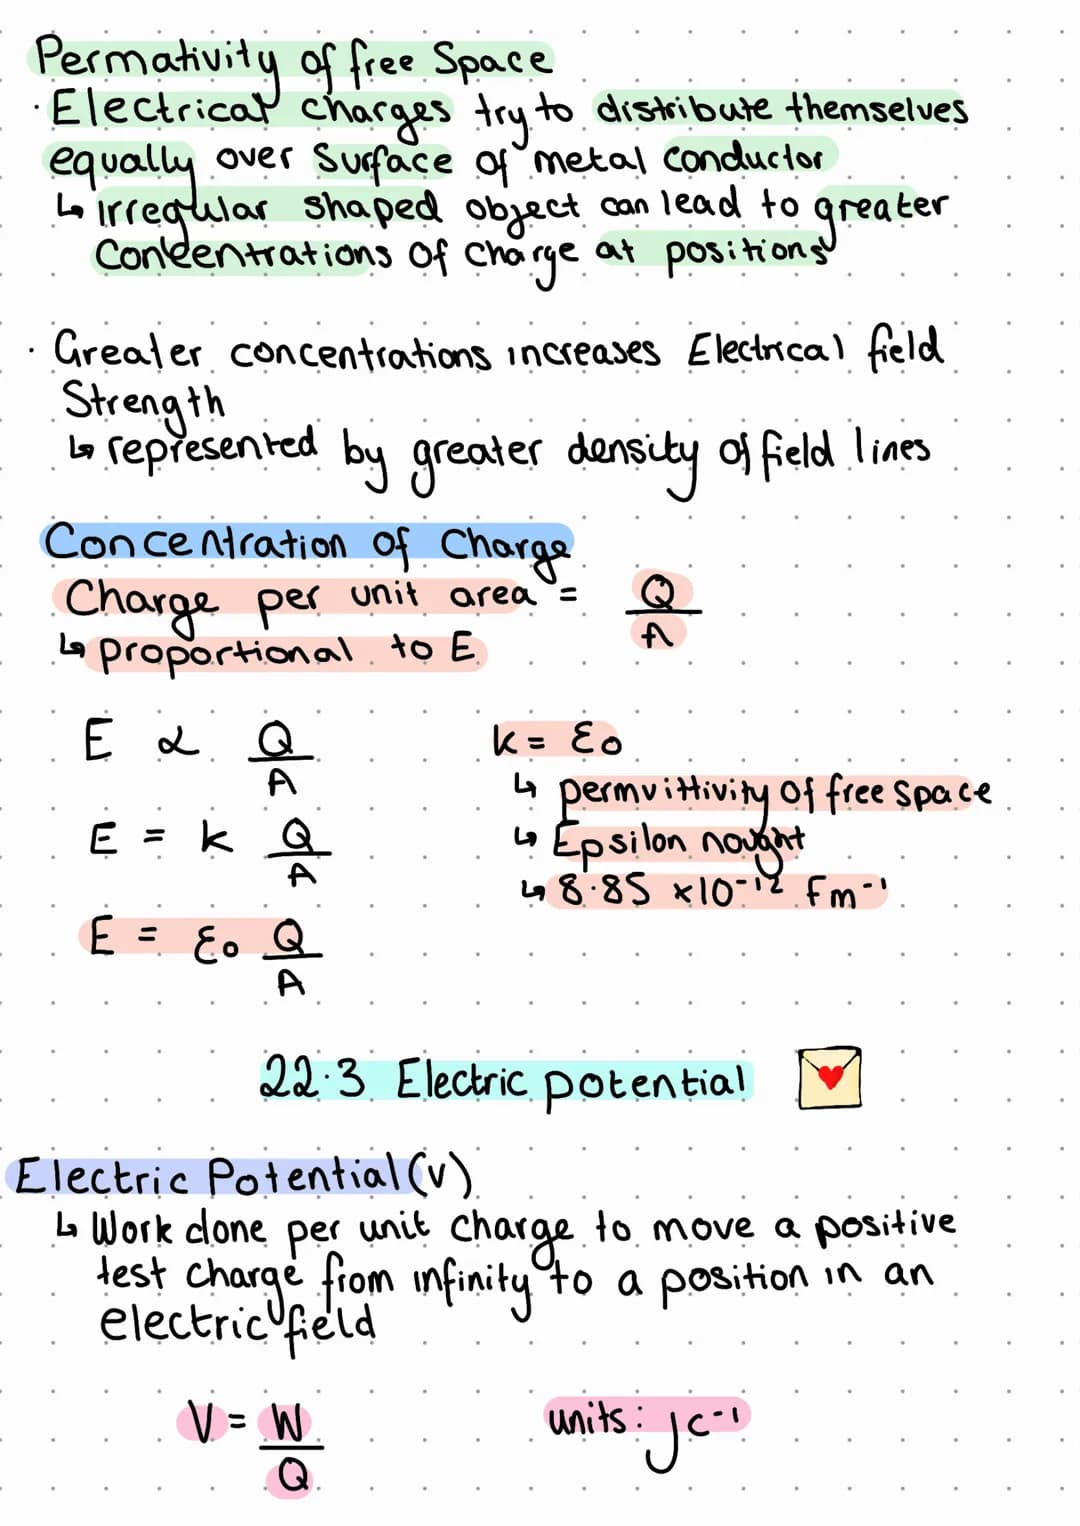 Permativity of free Space
· Electrical charges try to distribute themselves
equally over Surface of metal conductor
↳ irregular shaped object can lead to greater
Concentrations of Charge at positions
· Greater concentrations increases Electrical field
Strength
↳ represented by greater density of field lines
Concentration of Charge
Charge per unit area = Q/A
↳ proportional to E
E ∝ Q/A
k = ε₀
↳ permvittivity of free space
↳ Epsilon nought
↳ 8.85 ×10⁻¹² Fm⁻¹
E = k Q/A
E = ε₀ Q/A
22.3 Electric potential
Electric Potential (v)
↳ Work done per unit charge to move a positive
test charge from infinity to a position in an
electric field
V = W/Q
units: JC⁻¹